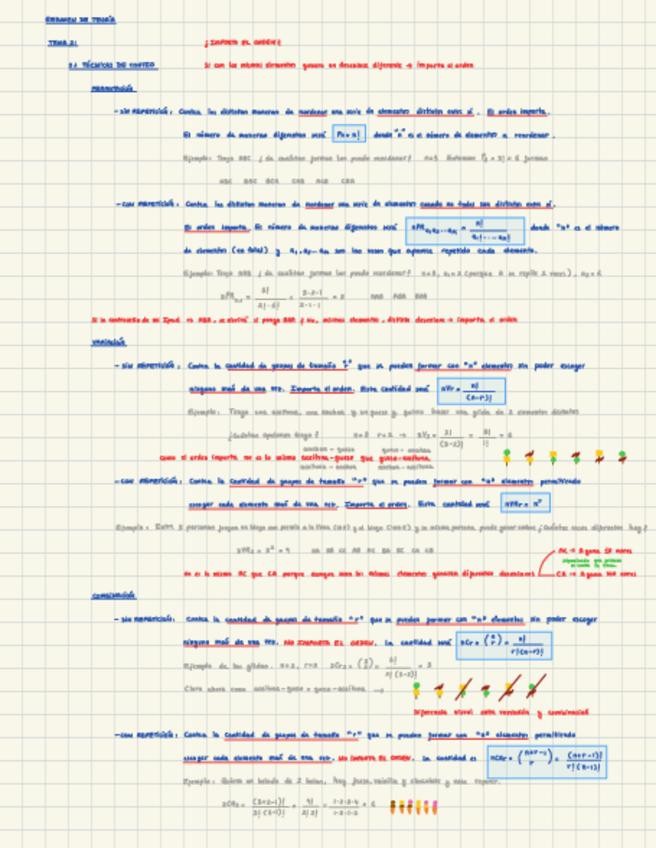 RESUMEN DE TEORÍA
TEMA 2: ¿IMPORTA EL ORDEN?
2.1 TÉCNICAS DE CONTEO Si con los mismos elementos genero un desenlace diferente → importa el orden
PERMUTACIÓN
- SIN REPETICIÓN: Contar las distintas maneras de reordenar una serie de elementos distintos entre sí. El orden importa.
El número de maneras diferentes será Pn = n! donde "n" es el número de elementos a reordenar.
Ejemplo: Tengo ABC ¿de cuántas formas los puedo reordenar? n=3 Entonces P3 = 3! = 6 formas
ABC BAC BCA CAB ACB CBA
- CON REPETICIÓN: Contar las distintas maneras de reordenar una serie de elementos cuando no todos son distintos entre sí.
El orden importa. El número de maneras diferentes será donde "n" es el número
de elementos (en total) y a1, a2... an son las veces que aparece repetido cada elemento.
Ejemplo: Tengo ¿de cuántas formas los puedo reordenar? n=3, a1=2 (porque A se repite 2 veces),
Si la contraseña de mi Ipad es se abrirá si pongo No, mismos elementos, distinto desenlace → importa el orden
VARIACIÓN
- SIN REPETICIÓN: Contar la cantidad de grupos de tamaño "r" que se pueden formar con "n" elementos sin poder escoger
ninguno más de una vez. Importa el orden. Esta cantidad será nVr = n! / (n-r)!
Ejemplo: Tengo una aceituna, una y un queso y quiero hacer una gilda de 2 elementos distintos
¿Cuántas opciones tengo? n=3 r=2 → 3V2 = 3! / (3-2)! = 3! / 1! = 6
como el orden importa no es lo mismo aceituna-queso que queso-aceituna.
- CON REPETICIÓN: Contar la cantidad de grupos de tamaño "r" que se pueden formar con "n" elementos permitiendo
escoger cada elemento más de una vez. Importa el orden. Esta cantidad será nVRr = n^r
Ejemplo: 3 personas juegan un bingo con premio a la línea y al bingo y la misma persona puede ganar ambos ¿Cuántos casos diferentes hay?
3VR2 = 3² = 9 AA BB CC AB AC BA BC CA CB
no es lo mismo AC que CA porque aunque sean los mismos elementos generan diferentes desenlaces
COMBINACIÓN
- SIN REPETICIÓN: Contar la cantidad de grupos de tamaño "r" que se pueden formar con "n" elementos sin poder escoger
ninguno más de una vez. NO IMPORTA EL ORDEN. La cantidad será nCr = (n r) = n! / r!(n-r)!
Ejemplo de las gildas. n=3, r=2 3C2 = (3 2) = 3! / 2!(3-2)! = 3
Claro ahora como aceituna-queso = queso-aceituna →
Diferencia visual entre variación y combinación
- CON REPETICIÓN: Contar la cantidad de grupos de tamaño "r" que se pueden formar con "n" elementos permitiendo
escoger cada elemento más de una vez. NO IMPORTA EL ORDEN. La cantidad es nCRr = (n+r-1 r) = (n+r-1)! / r!(n-1)!
Ejemplo: Quiero un helado de 2 bolas, hay fresa, vainilla y chocolate y puedo repetir.
3CR2 = (3+2-1)! / 2!(3-1)! = 4! / 2!2! = 1·2·3·4 / 1·2·1·2 = 6